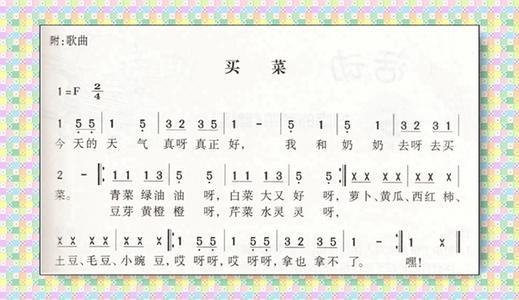 附:歌曲
买 菜
1=F 2/4
1 5 5 | 1 5 | 3 2 3 5 | 1 - | 5 1 | 5 1 | 3 2 3 5 |
今 天的 天 气 真呀 真正 好, 我 和 奶 奶 去呀 去买
2 - :‖: 1 1 1 3 | 2 5 | 1 1 1 3 | 2 5 | X X X X | X X X |
菜。 青菜 绿油 油 呀, 白菜 大又 好 呀, 萝卜、黄瓜、西红 柿、
豆芽 黄橙 橙 呀, 芹菜 水灵 灵 呀,
X X X X | X X X | 1 5 5 | 1 5 5 | 3 2 3 5 | 1 - :‖ 1 ‖
土豆、毛豆、小豌 豆, 哎 呀呀, 哎 呀呀, 拿也 拿不 了。 嘿!